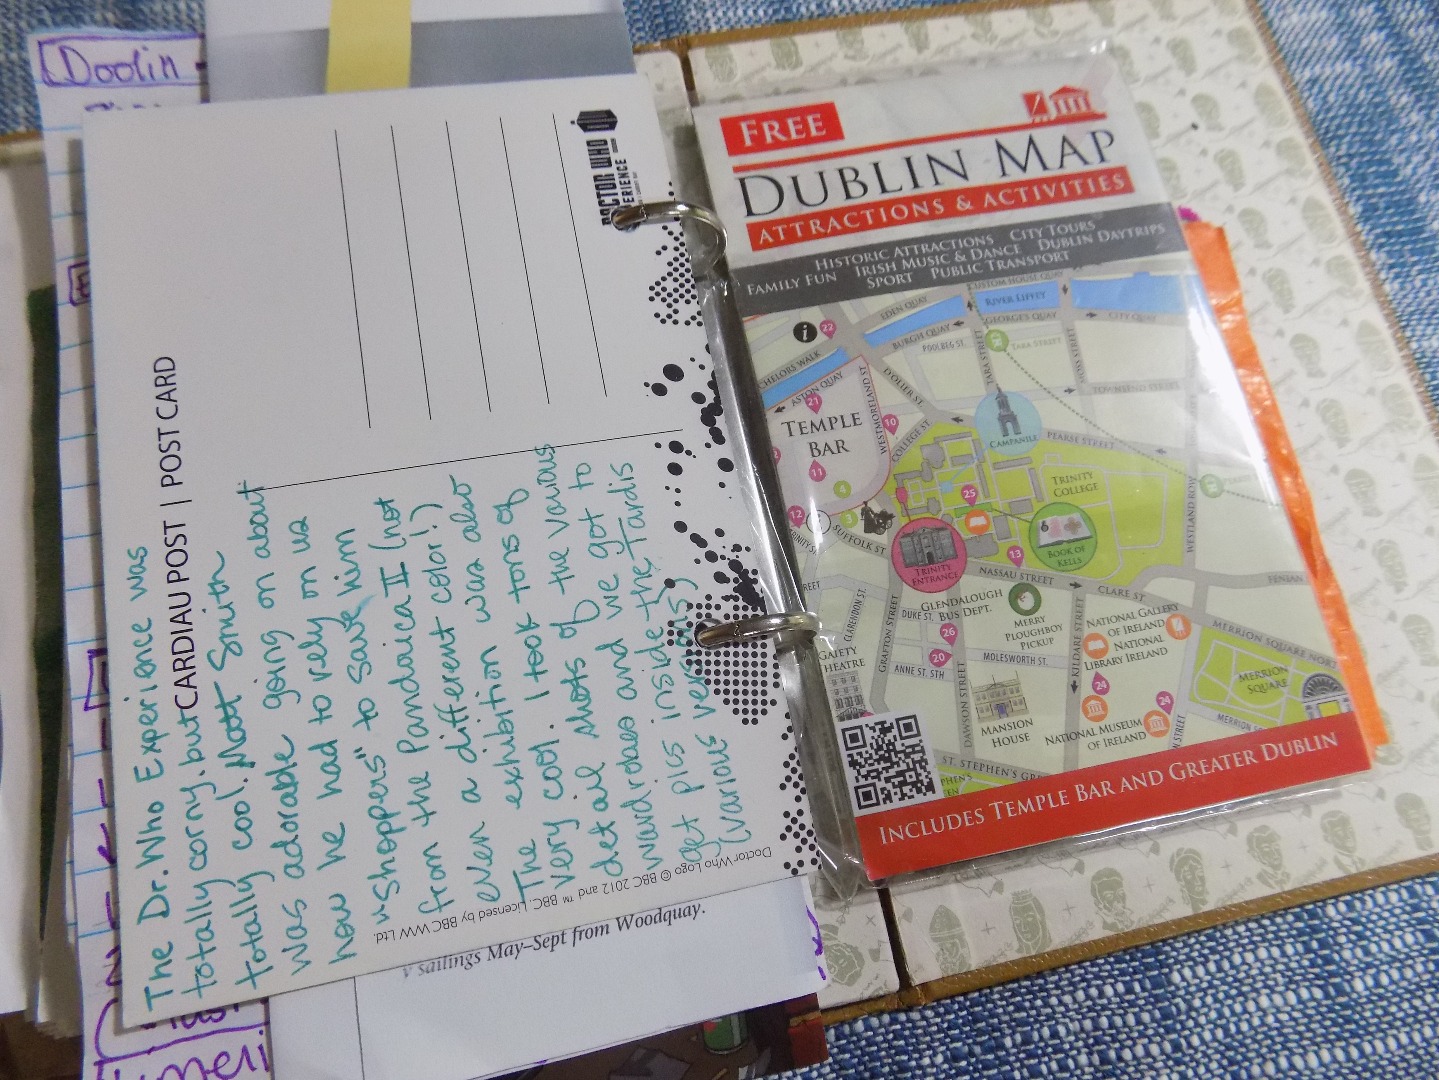 Doolin -
CARDIAU POST | POST CARD
DOCTOR WHO
The Dr. Who Experience was
totally corny, but
totally cool. Matt Smith
was adorable going on about
how he had to rely on us
"shoppers" to save him
from the Pandorica II (not
even a different color!)
The exhibition was also
very cool. I took tons of
detail shots of the various
wardrobes and we got to
get pics inside the Tardis
(various versions)
Doctor Who Logo © BBC 2012 and ™ BBC. Licensed by BBC WW Ltd.
sailings May–Sept from Woodquay.
FREE
DUBLIN MAP
ATTRACTIONS & ACTIVITIES
HISTORIC ATTRACTIONS CITY TOURS
FAMILY FUN IRISH MUSIC & DANCE DUBLIN DAYTRIPS
SPORT PUBLIC TRANSPORT
CUSTOM HOUSE QUAY
EDEN QUAY
RIVER LIFFEY
BURGH QUAY
GEORGE'S QUAY
CITY QUAY
i
22
POOLBEG ST.
TARA STREET
TARA STREET
MOSS STREET
CHELORS WALK
ASTON QUAY
D'OLIER ST.
TOWNSEND STREET
21
WESTMORELAND ST.
TEMPLE
BAR
10
COLLEGE ST.
CAMPANILE
PEARSE STREET
11
TRINITY
COLLEGE
25
4
12
3
SUFFOLK ST
WESTLAND ROW
TRINITY
ENTRANCE
BOOK OF
KELLS
13
NASSAU STREET
CLARE ST.
FENIAN
CLARENDON ST.
GRAFTON ST.
GLENDALOUGH
BUS DEPT.
DUKE ST.
MERRY
PLOUGHBOY
PICKUP
KILDARE STREET
NATIONAL GALLERY
OF IRELAND
NATIONAL
LIBRARY IRELAND
MERRION SQUARE NORT
26
20
ANNE ST. STH
DAWSON STREET
MOLESWORTH ST.
GAIETY
THEATRE
MANSION
HOUSE
24
24
NATIONAL MUSEUM
OF IRELAND
MERRION
SQUARE
MERRION S
ST. STEPHEN'S GRE
INCLUDES TEMPLE BAR AND GREATER DUBLIN